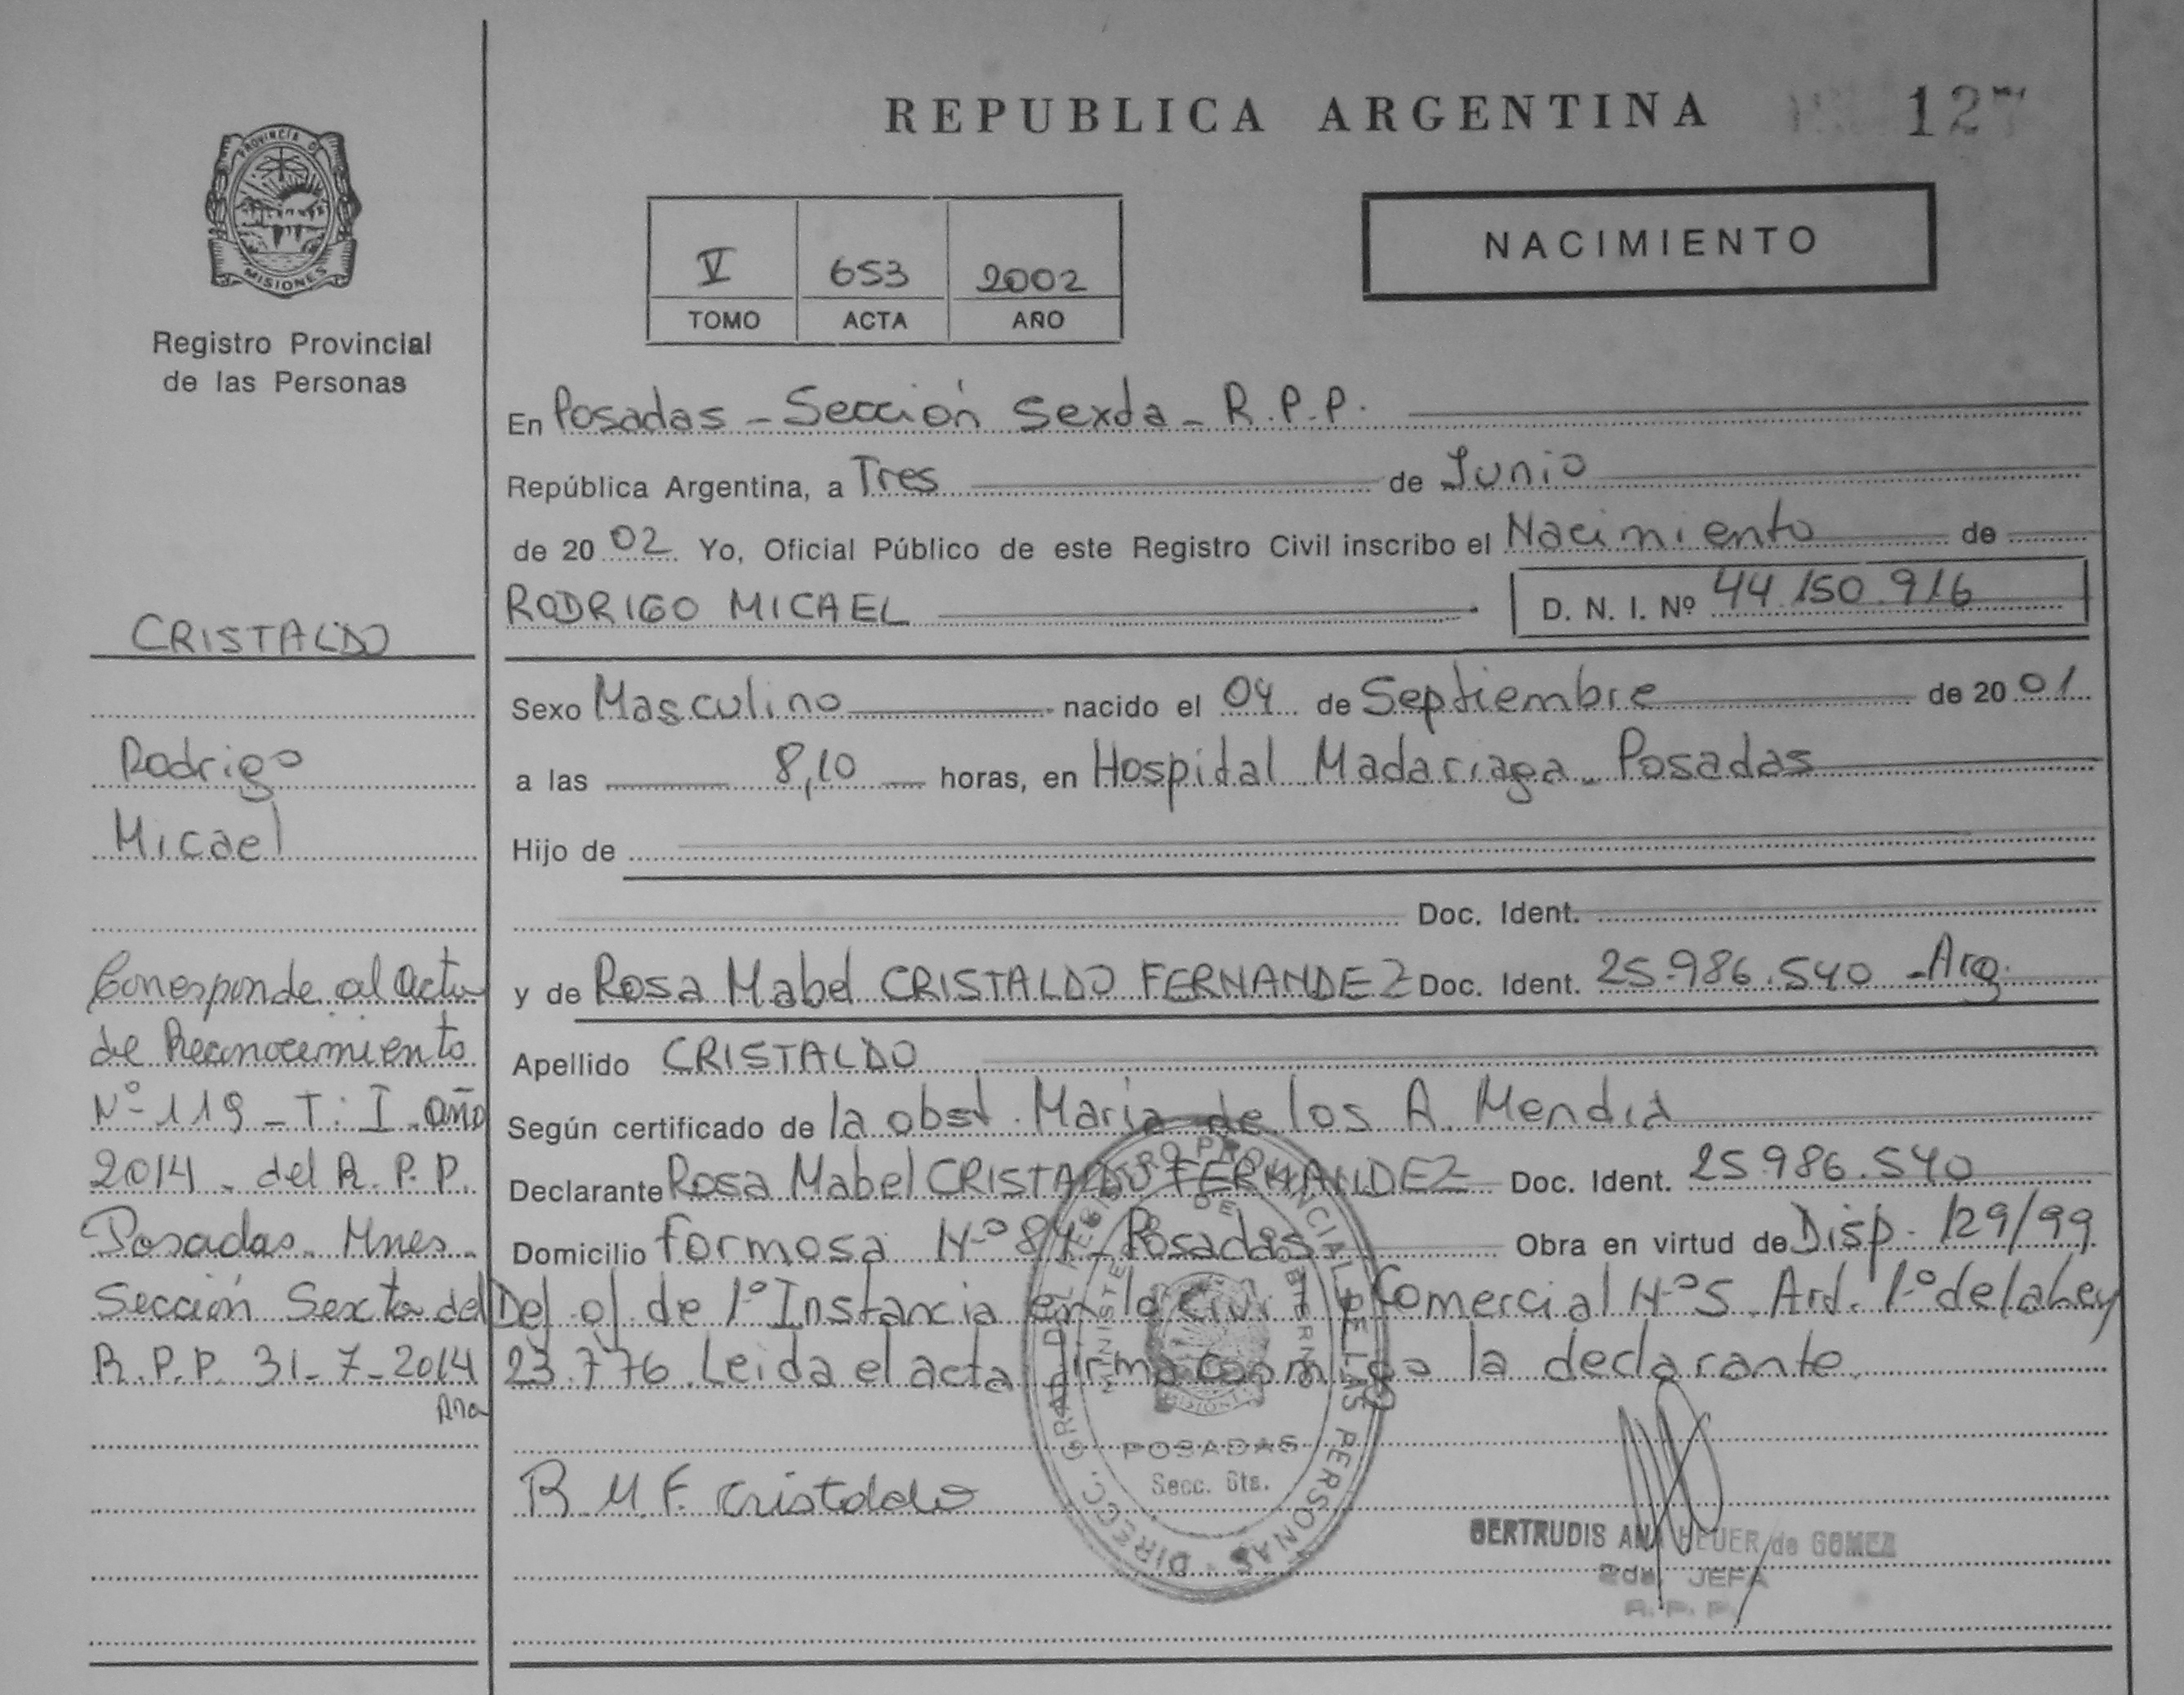 REPUBLICA ARGENTINA
127
PROVINCIA DE
MISIONES
Registro Provincial
de las Personas
V 653 2002
TOMO ACTA AÑO
NACIMIENTO
En Posadas - Sección Sexta - R.P.P.
República Argentina, a Tres de Junio
de 20 02 Yo, Oficial Público de este Registro Civil inscribo el Nacimiento de
RODRIGO MICAEL D. N. I. Nº 44.150.916
CRISTALDO
Sexo Masculino nacido el 04 de Septiembre de 20 01
Rodrigo
a las 8,10 horas, en Hospital Madariaga - Posadas
Micael
Hijo de
Doc. Ident.
y de Rosa Mabel CRISTALDO FERNANDEZ Doc. Ident. 25.986.540 - Arg.
Apellido CRISTALDO
Según certificado de la obst. Maria de los A. Mendia
Declarante Rosa Mabel CRISTALDO FERNANDEZ Doc. Ident. 25.986.540
Domicilio Formosa Nº 84 - Posadas Obra en virtud de Disp. 129/99
Def. of. de 1º Instancia en lo Civil y Comercial Nº 5. Art. 1º de la Ley
23.776. Leida el acta firma conmigo la declarante.
Corresponde al Acta
de Reconocimiento
Nº 119 - T: I. año
2014 - del R.P.P.
Posadas. Mnes.
Sección Sexta del
R.P.P. 31-7-2014
Ana
R. M. F. Cristaldo
DIRECC. GRAL. DEL REGISTRO PROVINCIAL DE LAS PERSONAS
MINISTERIO DE GOBIERNO
MISIONES
POSADAS
Secc. 6ta.
GERTRUDIS ANA HEUER de GOMEZ
2da. JEFA
R. P. P.